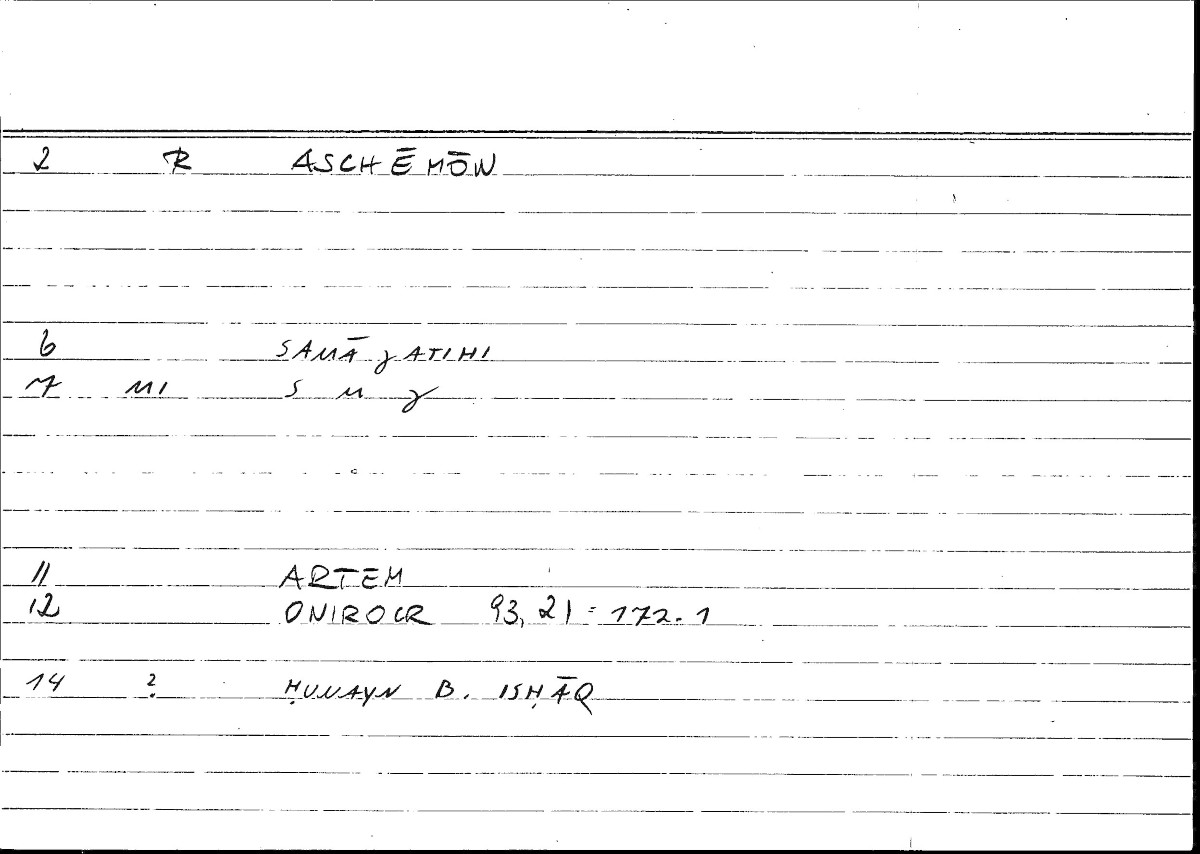 2 R ASCHĒMŌN
6 SAMĀJATIHI
7 MI S M J
11 ARTEM
12 ONIROCR 93,21=172.1
14 ? ḤUNAYN B. ISḤĀQ